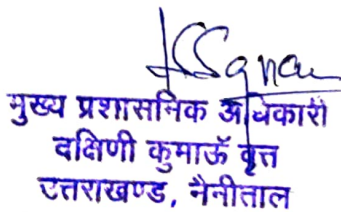 मुख्य प्रशासनिक अधिकारी
दक्षिणी कुमाऊँ वृत्त
उत्तराखण्ड, नैनीताल